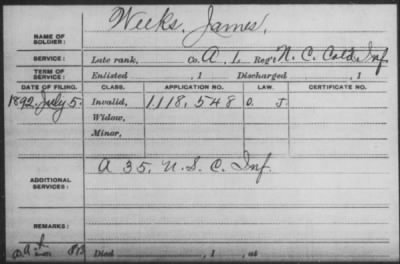 NAME OF SOLDIER: Weeks, James,
SERVICE: Late rank, Co. A, 1 Reg't N. C. Cold. Inf.
TERM OF SERVICE: Enlisted , 1 Discharged , 1
DATE OF FILING. CLASS. APPLICATION NO. LAW. CERTIFICATE NO.
1892, July 5. Invalid, 1118,548
Widow,
Minor,
ADDITIONAL SERVICES: A 35, U. S. C. Inf.
REMARKS:
Died , 1 , at